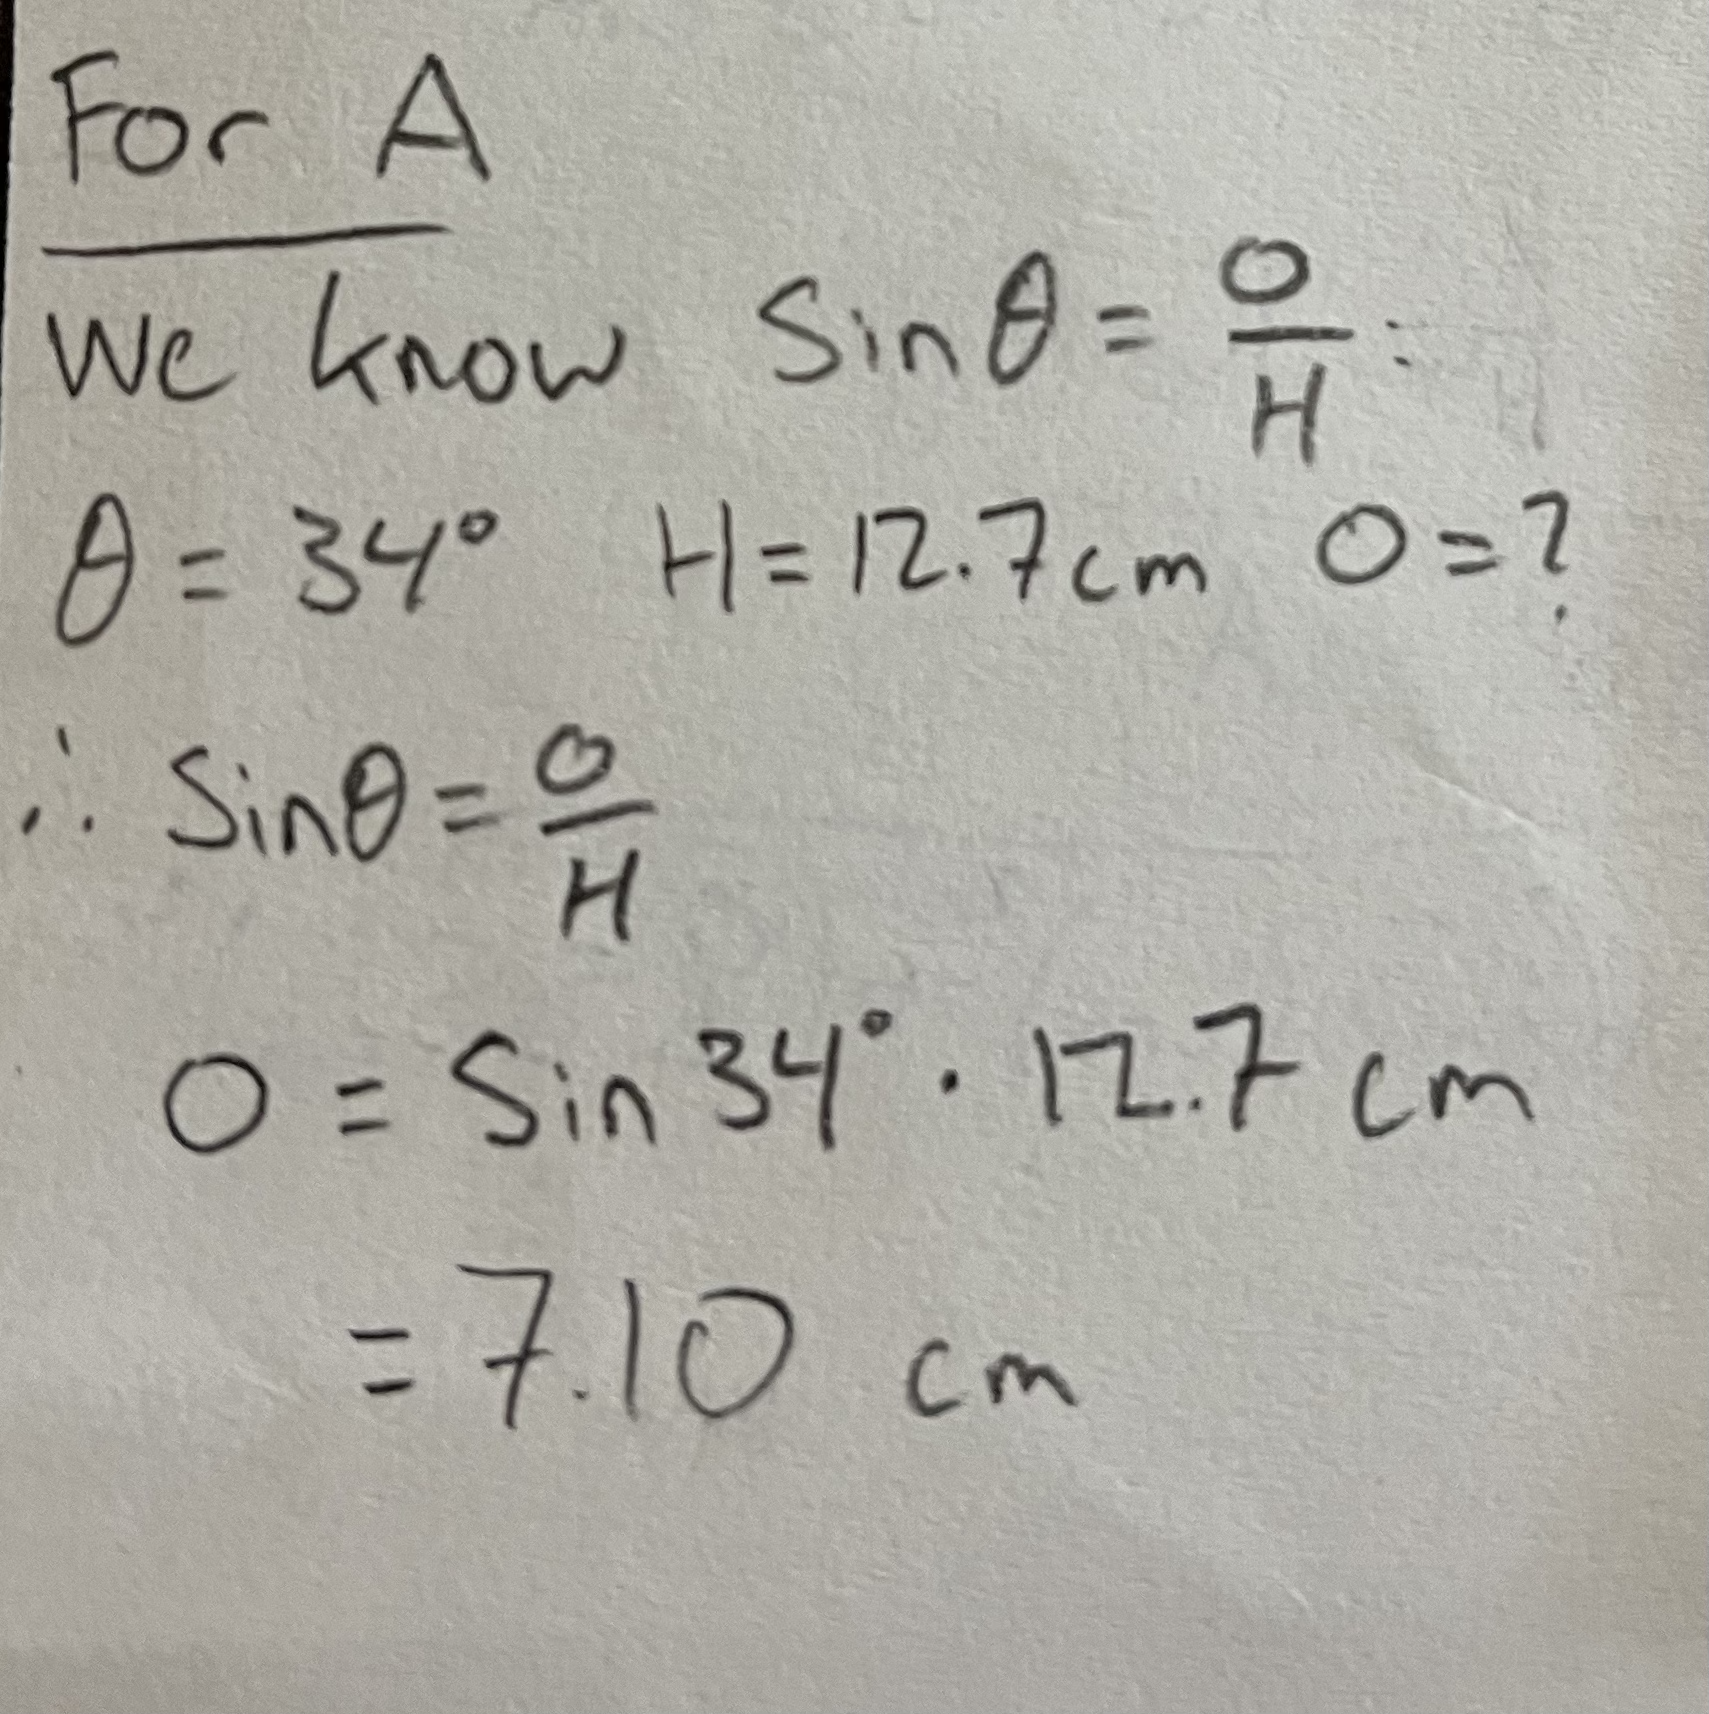 For A
We know Sinθ = O/H :
θ = 34° H = 12.7cm O = ?
∴ Sinθ = O/H
O = Sin 34° · 12.7 cm
= 7.10 cm